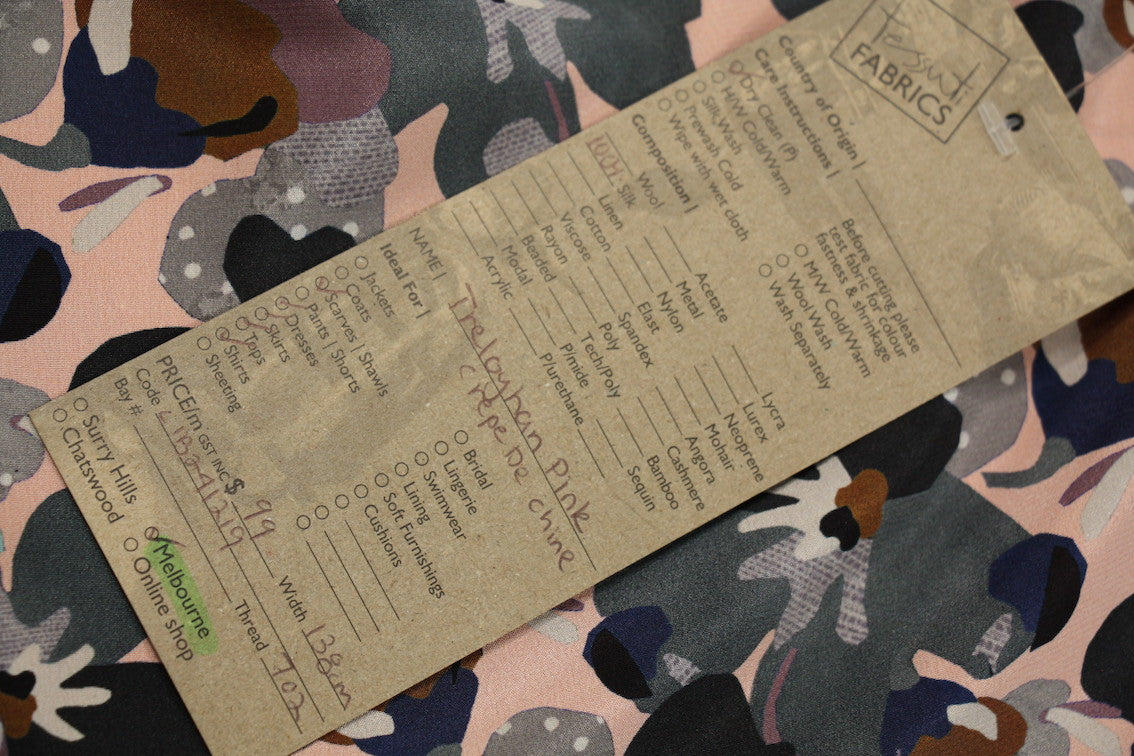 Tessuti
FABRICS
Country of Origin |
Care Instructions |
Dry Clean (P)
H/W Cold/Warm
Silk Wash
Prewash Cold
Wipe with wet cloth
Before cutting please
test fabric for colour
fastness & shrinkage
M/W Cold/Warm
Wool Wash
Wash Separately
Composition |
Wool
100% Silk
Linen
Cotton
Viscose
Rayon
Beaded
Modal
Acrylic
Acetate
Metal
Nylon
Elast
Spandex
Poly
Tech/Poly
P/mide
P/urethane
Lycra
Lurex
Neoprene
Mohair
Angora
Cashmere
Bamboo
Sequin
NAME | Treloyhan Pink
crepe De chine
Ideal For |
Jackets
Coats
Scarves | Shawls
Pants | Shorts
Dresses
Skirts
Tops
Shirts
Sheeting
Bridal
Lingerie
Swimwear
Lining
Soft Furnishings
Cushions
PRICE/m GST INC $ 99 Width 138cm
Code Thread 702
Bay #
Surry Hills
Chatswood
Melbourne
Online shop